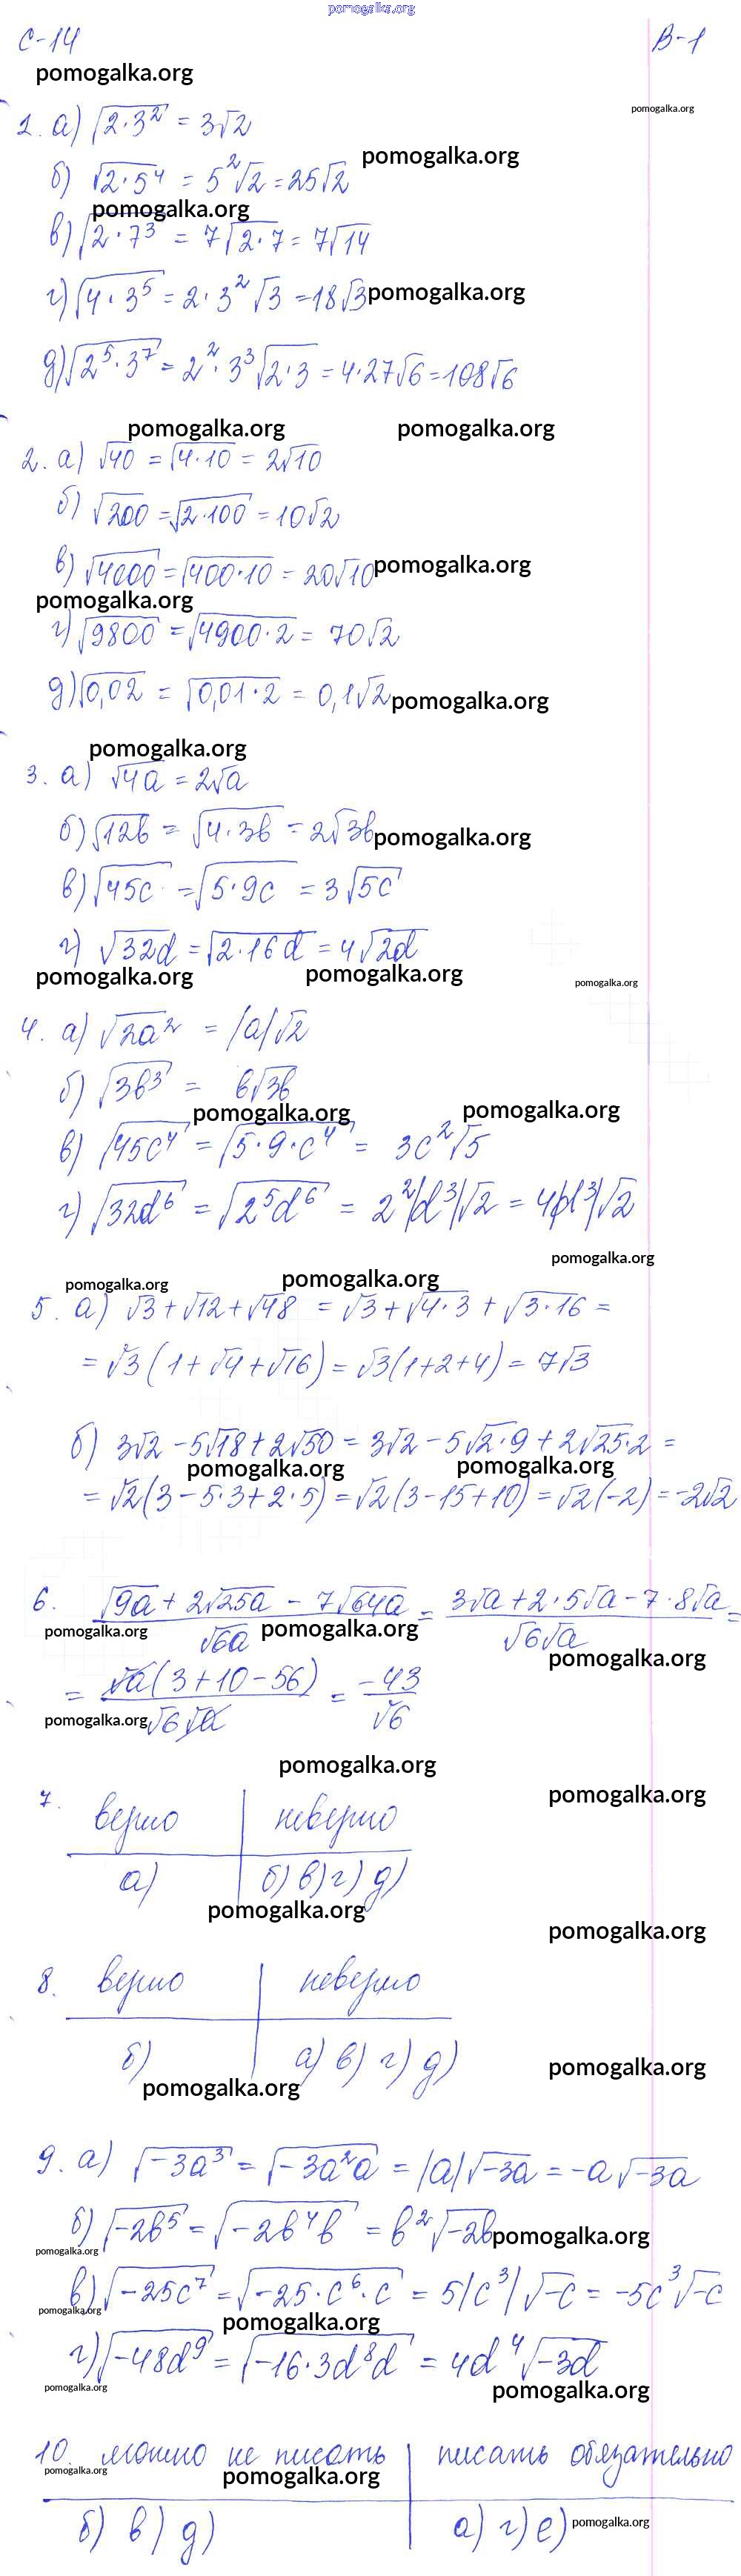 pomogalka.org
С-14 В-1
pomogalka.org
pomogalka.org
1. а) √(2·3²) = 3√2
pomogalka.org
б) √(2·5⁴) = 5²√2 = 25√2
pomogalka.org
в) √(2·7³) = 7√(2·7) = 7√14
г) √(4·3⁵) = 2·3²√3 = 18√3 pomogalka.org
д) √(2⁵·3⁷) = 2²·3³√(2·3) = 4·27√6 = 108√6
pomogalka.org pomogalka.org
2. а) √40 = √(4·10) = 2√10
б) √200 = √(2·100) = 10√2
в) √4000 = √(400·10) = 20√10 pomogalka.org
pomogalka.org
г) √9800 = √(4900·2) = 70√2
д) √0,02 = √(0,01·2) = 0,1√2 pomogalka.org
pomogalka.org
3. а) √4a = 2√a
б) √12b = √(4·3b) = 2√3b pomogalka.org
в) √45c = √(5·9c) = 3√5c
г) √32d = √(2·16d) = 4√2d
pomogalka.org pomogalka.org pomogalka.org
4. а) √2a² = |a|√2
б) √3b³ = b√3b
pomogalka.org pomogalka.org
в) √45c⁴ = √(5·9·c⁴) = 3c²√5
г) √32d⁶ = √(2⁵d⁶) = 2²|d³|√2 = 4|d³|√2
pomogalka.org
pomogalka.org pomogalka.org
5. а) √3 + √12 + √48 = √3 + √(4·3) + √(3·16) =
= √3(1 + √4 + √16) = √3(1+2+4) = 7√3
б) 3√2 - 5√18 + 2√50 = 3√2 - 5√(2·9) + 2√(25·2) =
pomogalka.org pomogalka.org
= √2(3 - 5·3 + 2·5) = √2(3 - 15 + 10) = √2(-2) = -2√2
6. (√9a + 2√25a - 7√64a) / √6a = (3√a + 2·5√a - 7·8√a) / (√6√a) =
pomogalka.org pomogalka.org
pomogalka.org
= √a(3 + 10 - 56) / (√6√a) = -43/√6
pomogalka.org
pomogalka.org
pomogalka.org
7. верно | неверно
а) | б) в) г) д)
pomogalka.org
pomogalka.org
8. верно | неверно
б) | а) в) г) д)
pomogalka.org
pomogalka.org
9. а) √(-3a³) = √(-3a²a) = |a|√(-3a) = -a√(-3a)
б) √(-2b⁵) = √(-2b⁴b) = b²√(-2b) pomogalka.org
pomogalka.org
в) √(-25c⁷) = √(-25·c⁶·c) = 5|c³|√(-c) = -5c³√(-c)
pomogalka.org
pomogalka.org
г) √(-48d⁹) = √(-16·3d⁸d) = 4d⁴√(-3d)
pomogalka.org
pomogalka.org
10. можно не писать | писать обязательно
pomogalka.org
pomogalka.org
б) в) д) | а) г) е) pomogalka.org